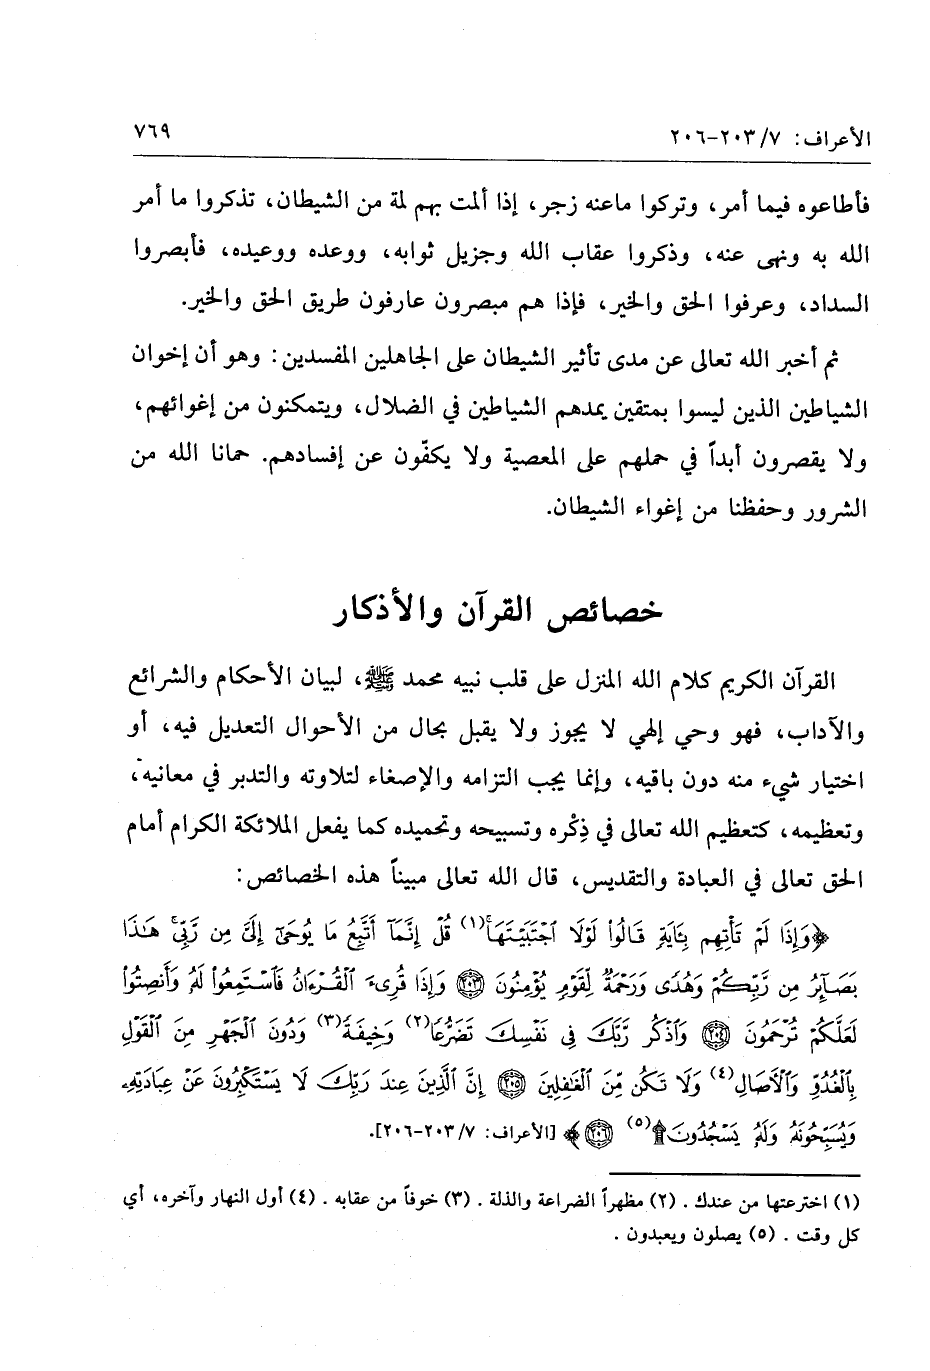 الأعراف: ٧/ ٢٠٣-٢٠٦
٧٦٩
فأطاعوه فيما أمر، وتركوا ماعنه زجر، إذا ألمت بهم لمة من الشيطان، تذكروا ما أمر
الله به ونهى عنه، وذكروا عقاب الله وجزيل ثوابه، ووعده ووعيده، فأبصروا
السداد، وعرفوا الحق والخير، فإذا هم مبصرون عارفون طريق الحق والخير.
ثم أخبر الله تعالى عن مدى تأثير الشيطان على الجاهلين المفسدين: وهو أن إخوان
الشياطين الذين ليسوا بمتقين يمدهم الشياطين في الضلال، ويتمكنون من إغوائهم،
ولا يقصرون أبداً في حملهم على المعصية ولا يكفّون عن إفسادهم. حمانا الله من
الشرور وحفظنا من إغواء الشيطان.
خصائص القرآن والأذكار
القرآن الكريم كلام الله المنزل على قلب نبيه محمد ﷺ، لبيان الأحكام والشرائع
والآداب، فهو وحي إلهي لا يجوز ولا يقبل بحال من الأحوال التعديل فيه، أو
اختيار شيء منه دون باقيه، وإنما يجب التزامه والإصغاء لتلاوته والتدبر في معانيه،
وتعظيمه، كتعظيم الله تعالى في ذِكْره وتسبيحه وتحميده كما يفعل الملائكة الكرام أمام
الحق تعالى في العبادة والتقديس، قال الله تعالى مبيناً هذه الخصائص:
﴿وَإِذَا لَمْ تَأْتِهِم بِـَٔايَةٍ قَالُوا۟ لَوْلَا ٱجْتَبَيْتَهَا ۚ(١) قُلْ إِنَّمَآ أَتَّبِعُ مَا يُوحَىٰٓ إِلَىَّ مِن رَّبِّى ۚ هَـٰذَا
بَصَآئِرُ مِن رَّبِّكُمْ وَهُدًى وَرَحْمَةٌ لِّقَوْمٍ يُؤْمِنُونَ ۝٢٠٣ وَإِذَا قُرِئَ ٱلْقُرْءَانُ فَٱسْتَمِعُوا۟ لَهُۥ وَأَنصِتُوا۟
لَعَلَّكُمْ تُرْحَمُونَ ۝٢٠٤ وَٱذْكُر رَّبَّكَ فِى نَفْسِكَ تَضَرُّعًا(٢) وَخِيفَةً(٣) وَدُونَ ٱلْجَهْرِ مِنَ ٱلْقَوْلِ
بِٱلْغُدُوِّ وَٱلْـَٔاصَالِ(٤) وَلَا تَكُن مِّنَ ٱلْغَـٰفِلِينَ ۝٢٠٥ إِنَّ ٱلَّذِينَ عِندَ رَبِّكَ لَا يَسْتَكْبِرُونَ عَنْ عِبَادَتِهِۦ
وَيُسَبِّحُونَهُۥ وَلَهُۥ يَسْجُدُونَ ۩(٥) ۝٢٠٦﴾ [الأعراف: ٧/ ٢٠٣-٢٠٦].
(١) اخترعتها من عندك . (٢) مظهراً الضراعة والذلة . (٣) خوفاً من عقابه . (٤) أول النهار وآخره، أي
كل وقت . (٥) يصلون ويعبدون .